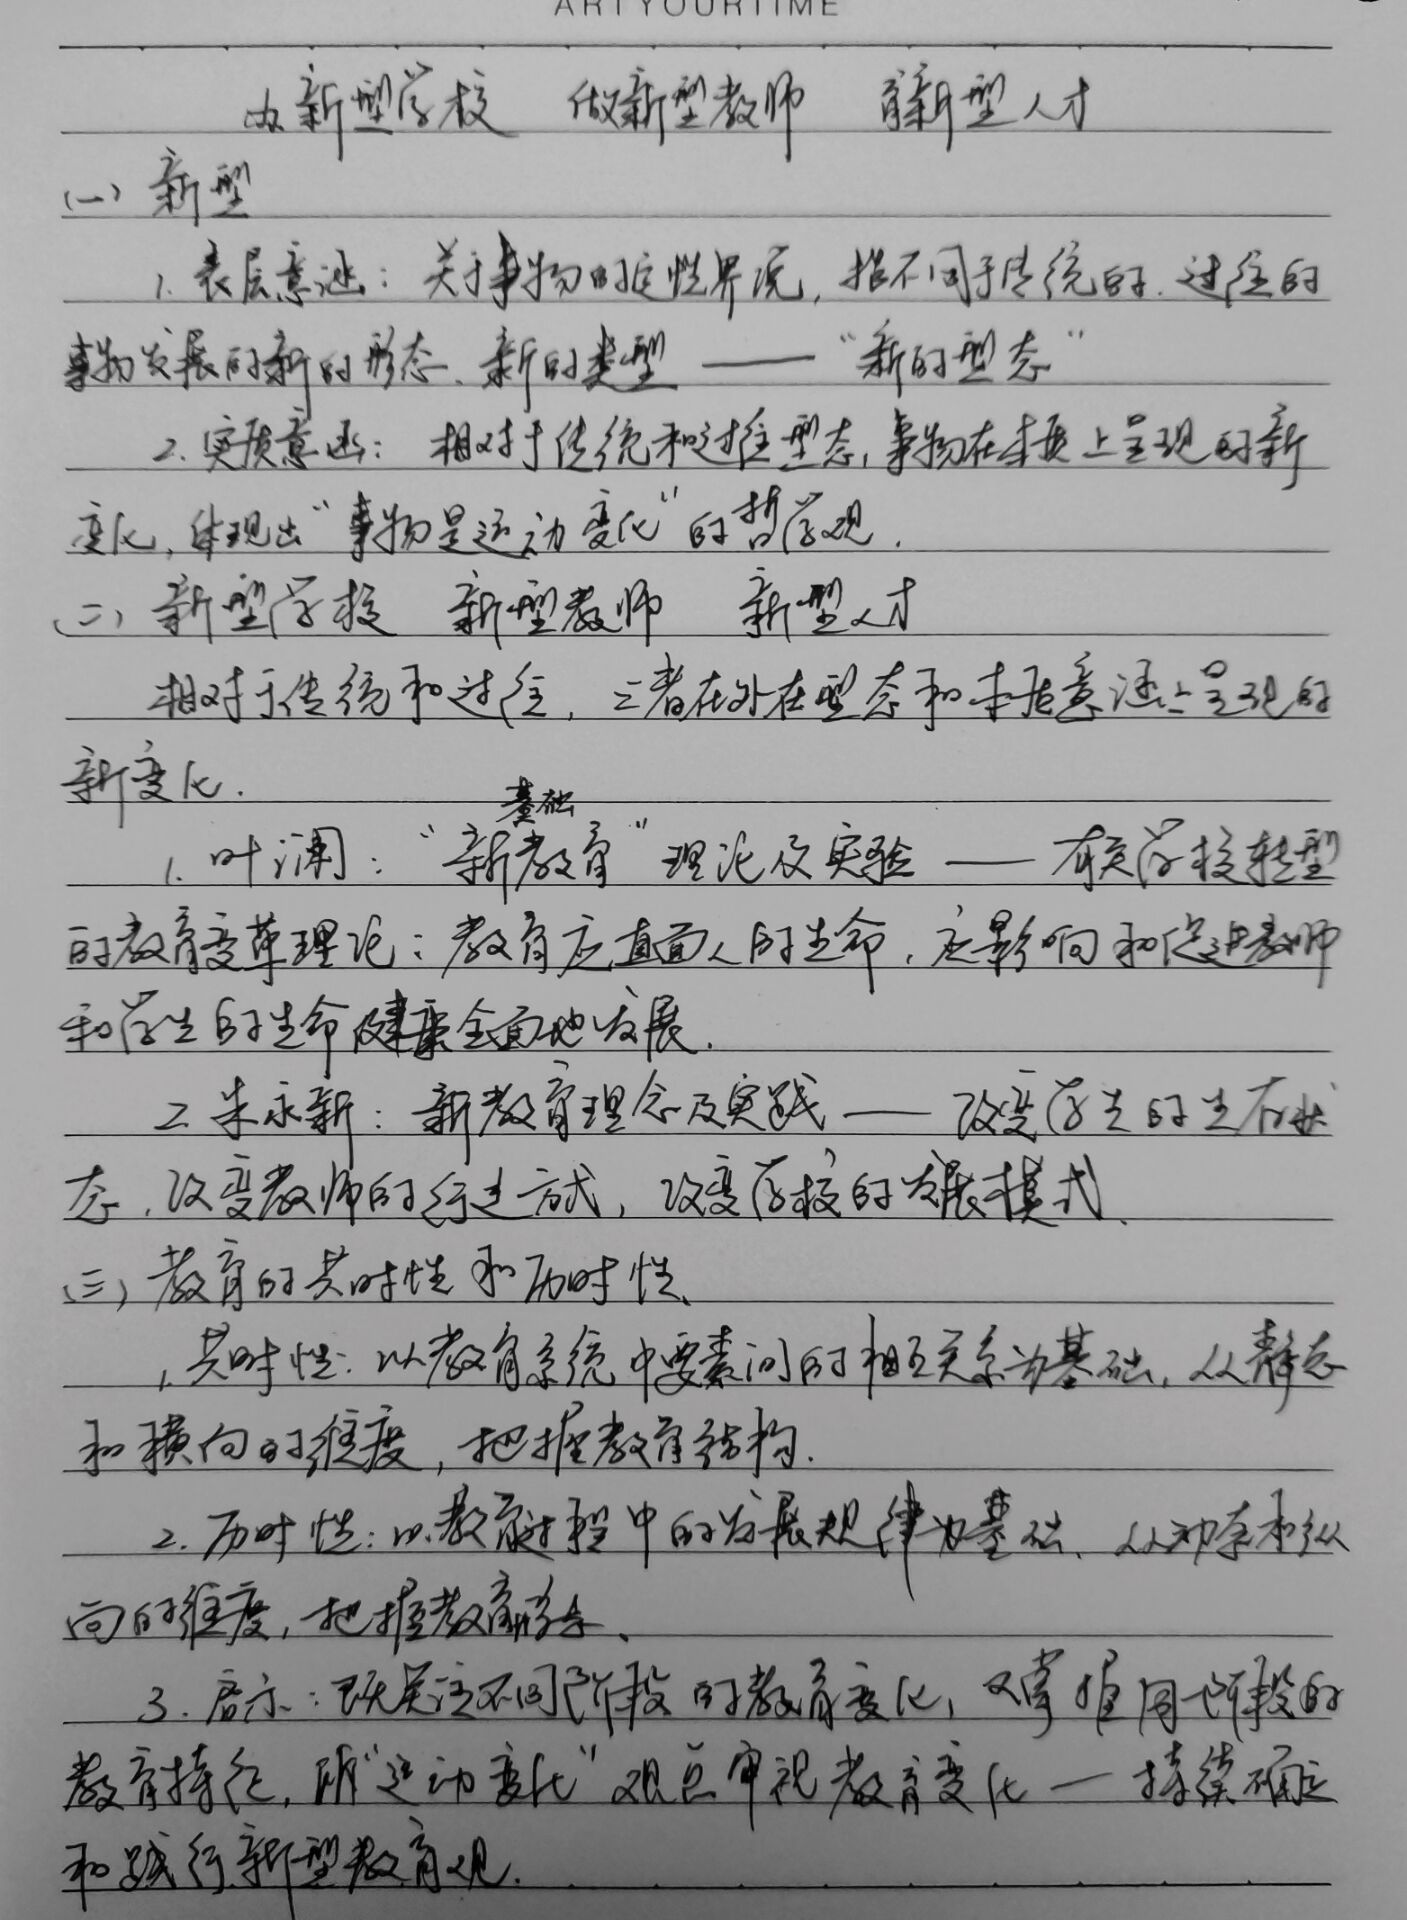 ARTYOURTIME
办新型学校 做新型教师 育新型人才
(一) 新型
1. 表层意涵：关于事物的定性界说，指不同于传统的、过往的
事物发展的新的形态、新的类型——“新的型态”
2. 实质意涵：相对于传统和过往型态，事物在本质上呈现的新
变化，体现出“事物是运动变化”的哲学观.
(二) 新型学校 新型教师 新型人才
相对于传统和过往，三者在外在型态和本质意涵上呈现的
新变化.
基础
1. 叶澜：“新教育”理论及实验——有关学校转型
的教育变革理论：教育应直面人的生命，应影响和促进教师
和学生的生命健康全面地发展.
2. 朱永新：新教育理念及实践——改变学生的生存状
态、改变教师的行走方式，改变学校的发展模式、
(三) 教育的共时性和历时性、
1. 共时性：以教育系统中要素间的相互关系为基础，从静态
和横向的维度，把握教育结构.
2. 历时性：以教育过程中的发展规律为基础、从动态和纵
向的维度，把握教育形态、
3. 启示：既关注不同阶段的教育变化，又掌握同一阶段的
教育特征，用“运动变化”观点审视教育变化—持续确立
和践行新型教育观.